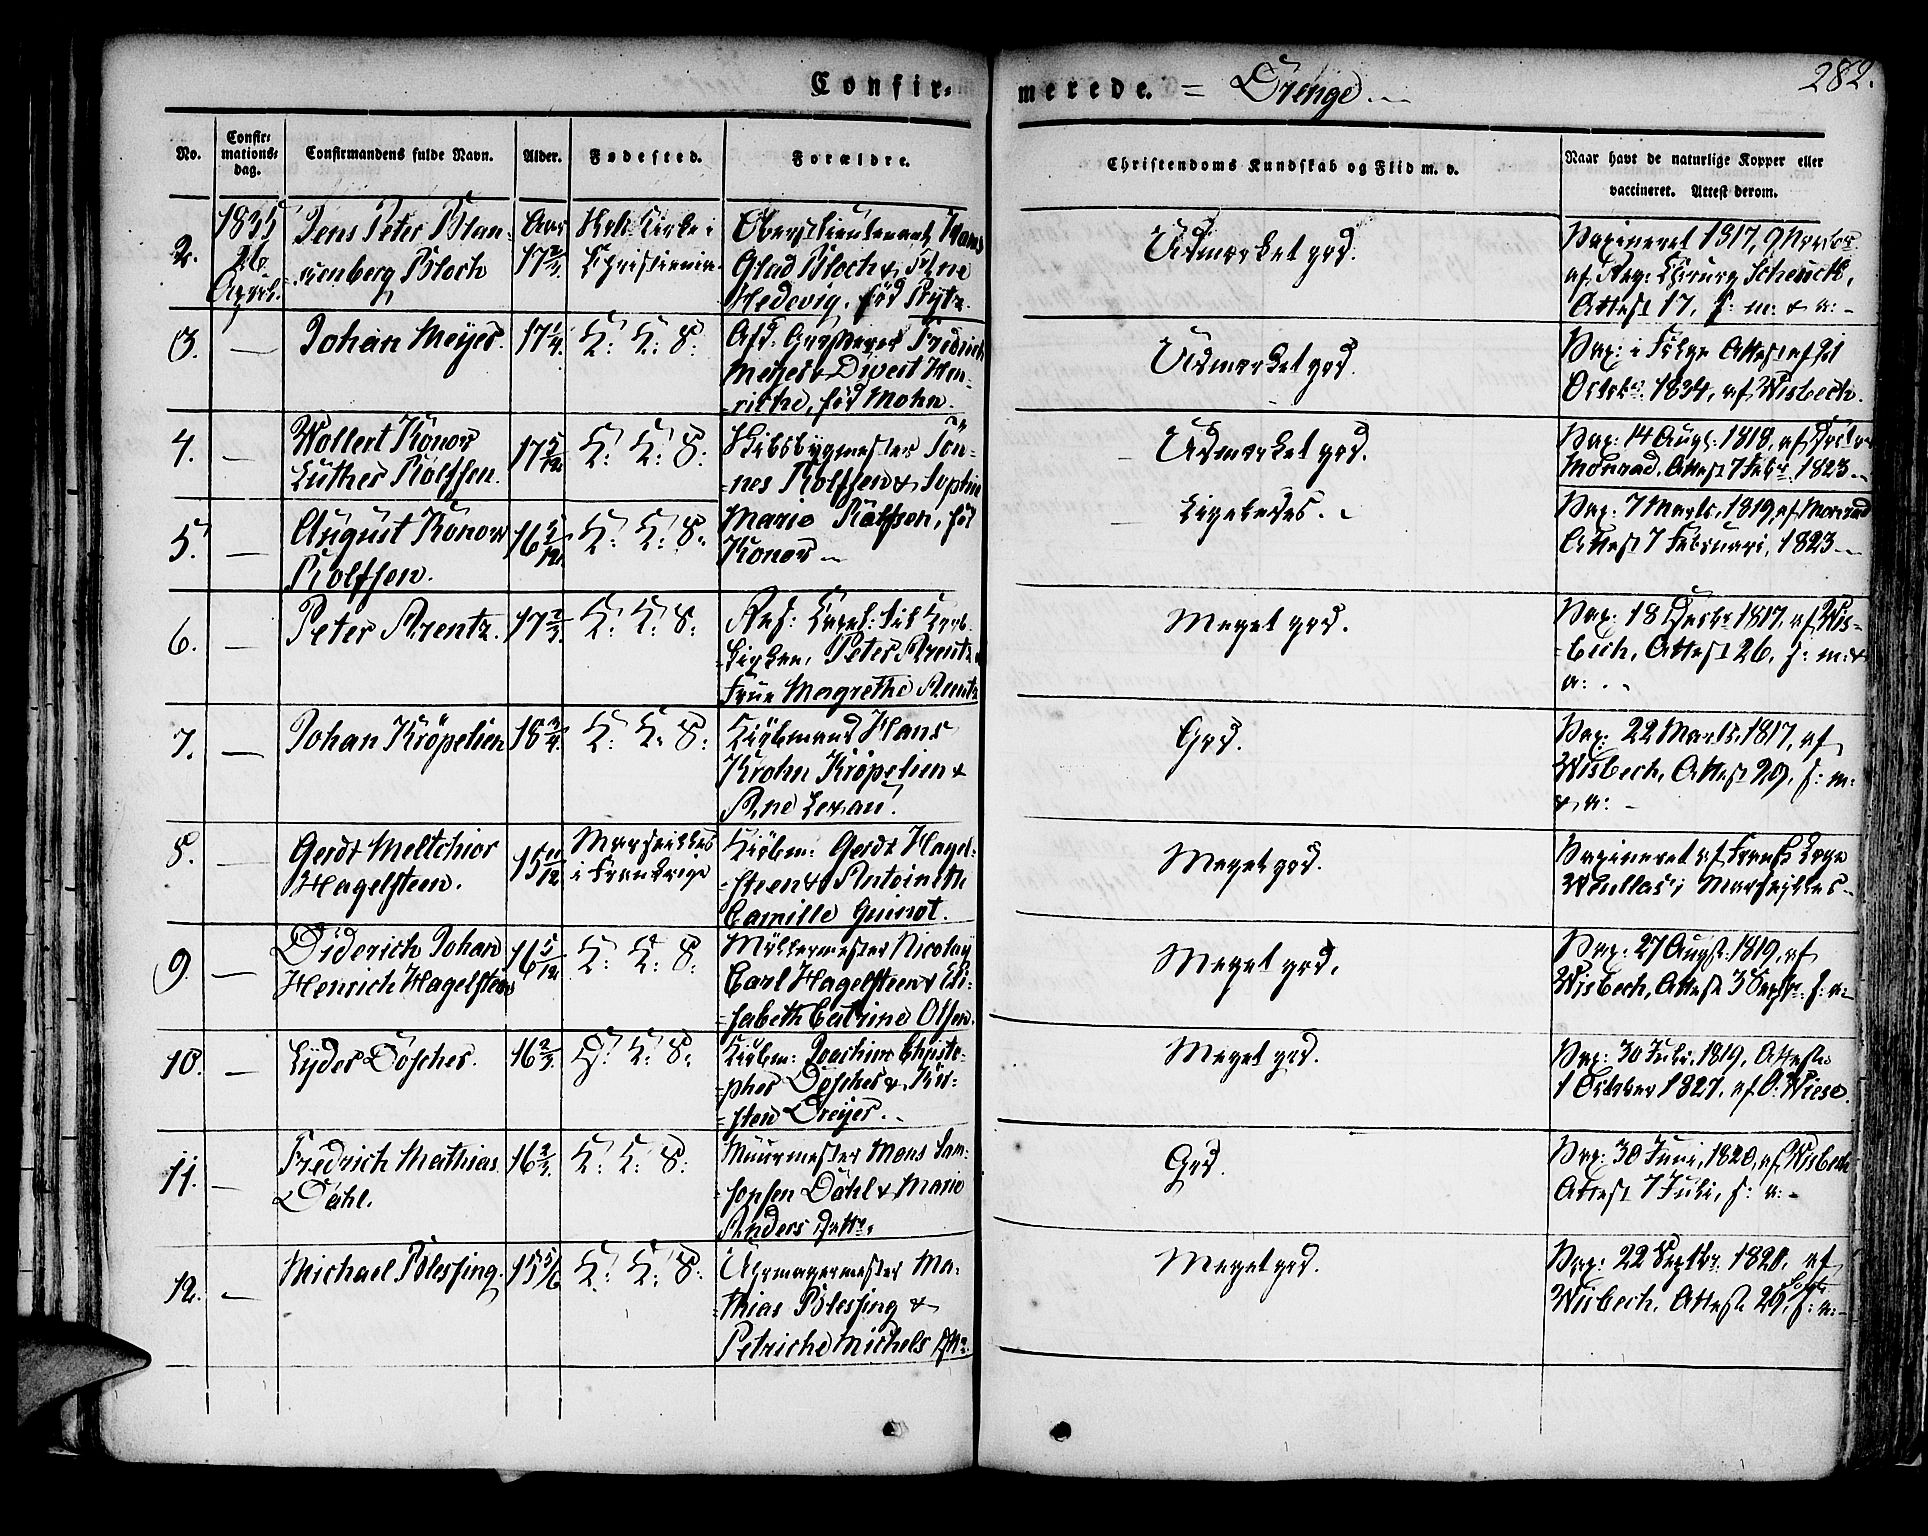 Confir= merede. = Drenge. 282.
No.
Confir=
mations=
dag.
Confirmandens fulde Navn.
Alder.
Fødested.
Forældre.
Christendoms Kundskab og Flid m. v.
Naar havt de naturlige Kopper eller
vaccineret. Attest derom.
2.
1835
26
April.
Jens Peter Blan-
kenberg Bloch
Aar
17 2/3
Kirke i
Christiania
Oberstlieutenant Hans
Glad Bloch & Ane
Hedevig, född Rytz.
Udmærket god.
Vaxineret 1817, 9 Novbr
af Reg: Chirurg Schenck,
Attest 17, s: m: & a: -
3. —
Johan Meyer.
17 1/4
K: K: S:
Afd. Fredrich
Meyer & Divert Hen-
riche, föd Mohn.
Udmærket god.
Vax: i Følge Attest af 21
Octbr: 1834, af Wisbech.
4. —
Wollert Konow
Luther Rolfsen.
17 5/12
K: K: S:
Skibsbygmester Tön-
nes Rolfsen & Sophie
Udmærket god.
Vax: 14 Augs: 1818, af
Monrad, Attest 7 Febr. 1823 -
5. —
August Konow
Rolfsen.
16 5/12
K: K: S:
Marie Rolfsen, föd
Konow -
Ligeledes. -
Vax: 7 Marts, 1819, af Monrad
Attest 7 Februari, 1823 -
6. —
Peter Arentz.
17 2/3
K: K: S:
Res: Capel: til Kors-
Kirken, Peter Arentz &
Frue Magrethe Arentz
Meget god.
Vax: 18 Decbr 1817, af Wis-
bech, Attest 26, s: m: &
a: -
7. —
Johan Kröpelien
18 3/4
K: K: S:
Kiöbmand Hans
Krohn Kröpelien &
Ane Lexau.
God.
Vax: 22 Marts, 1817, af
Wisbech, Attest 29, s: m:
& a: -
8. —
Gerdt Meltchior
Hagelsteen.
15 11/12
Marseilles
i Frankrige
Kiöbm: Gerdt Hagel-
steen & Antoineth
Camille Guinot.
Meget god.
Vaxineret af Fransk Læge
i Marseilles -
9. —
Diderich Johan
Henrich Hagelsteen
16 5/12
K: K: S:
Müllermester Nicolay
Carl Hagelsteen & Eli-
sabeth Catrine Olsen.
Meget god.
Vax: 27 August: 1819, af
Wisbech, Attest 3 Septbr: s: a: -
10. —
Lyder Döscher.
16 2/3
K: S:
Kiöbm: Joachim Christo-
pher Döscher & Kir-
sten Dreyer. -
Meget god.
Vax: 30 Juli, 1819, Attest
1 October 1827, af O: Wiese.
11. —
Fredrich Mathias
Dahl.
16 2/3
K: K: S:
Muurmester Mons Jan-
sen Dahl & Marie
Anders Datter.
God.
Vax: 30 Juni, 1820, af Wisbech
Attest 7 Juli, s: a: -
12. —
Michael Blessing.
15 5/6
K: K: S:
Uhrmagermester Ma-
thias Blessing &
Petriche Michels Dtr.
Meget god.
Vax: 22 Septbr: 1820, af
Wisbech, Attest 29 Septbr, s: a: -